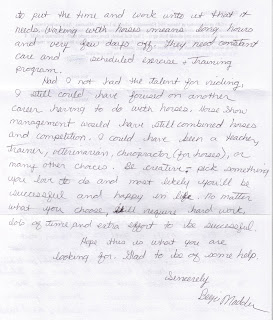 to put the time and work into it that it
needs. Working with horses means long hours
and very few days off. They need constant
care and scheduled exercise + training
program.
Had I not had the talent for riding,
I still could have focused on another
career having to do with horses. Horse Show
management would have still combined horses
and competition. I could have been a teacher,
trainer, veterinarian, chiropractor (for horses), or
many other choices. Be creative, pick something
you love to do and most likely you'll be
successful and happy in life. No matter
what you choose, it'll require hard work,
lots of time and extra effort to be successful.
Hope this is what you are
looking for. Glad to be of some help.
Sincerely
Madden